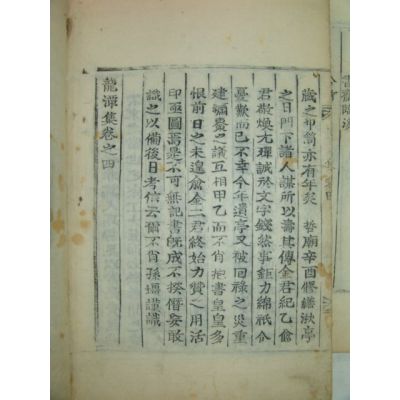 藏之巾笥亦有年矣 哲廟辛酉修繕漱亭
之日門下諸人謀所以壽其傳金君紀乙兪
君敎煥尤殫誠於文字錢然事鉅力綿祇令
憂歎而已不幸今年遺亭又被回祿之災重
建禰齋之議互相甲乙而不肖抱書皇皇多
恨前日之未遑兪金二君終始力賛之用活
印亟圖焉是不可無記書旣成不揆僭妄敢
識之以備後日考信云爾不肖孫 謹識
龍潭集卷之四